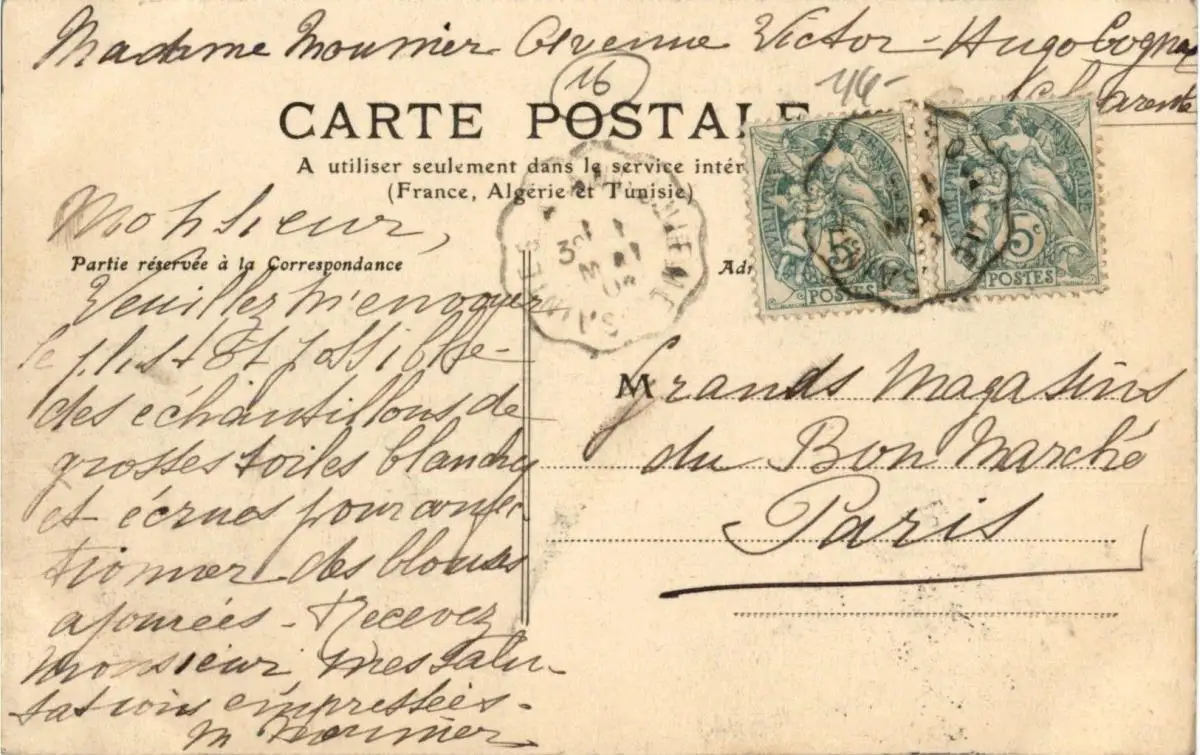 Madame Mounier Avenue Victor-Hugo Cognac
Charente
16
44-
CARTE POSTALE
A utiliser seulement dans le service intér
(France, Algérie et Tunisie)
Monsieur,
Partie réservée à la Correspondance
Veuillez m'envoyer
le plus tôt possible
des échantillons de
grosses toiles blanches
et écrues pour confec
tionner des blouses
ajourées - Recevez
Monsieur, mes salu-
tations empressées -
M Mounier
Adr
5c
POSTES
5c
POSTES
M
Grands Magasins
du Bon Marché
Paris